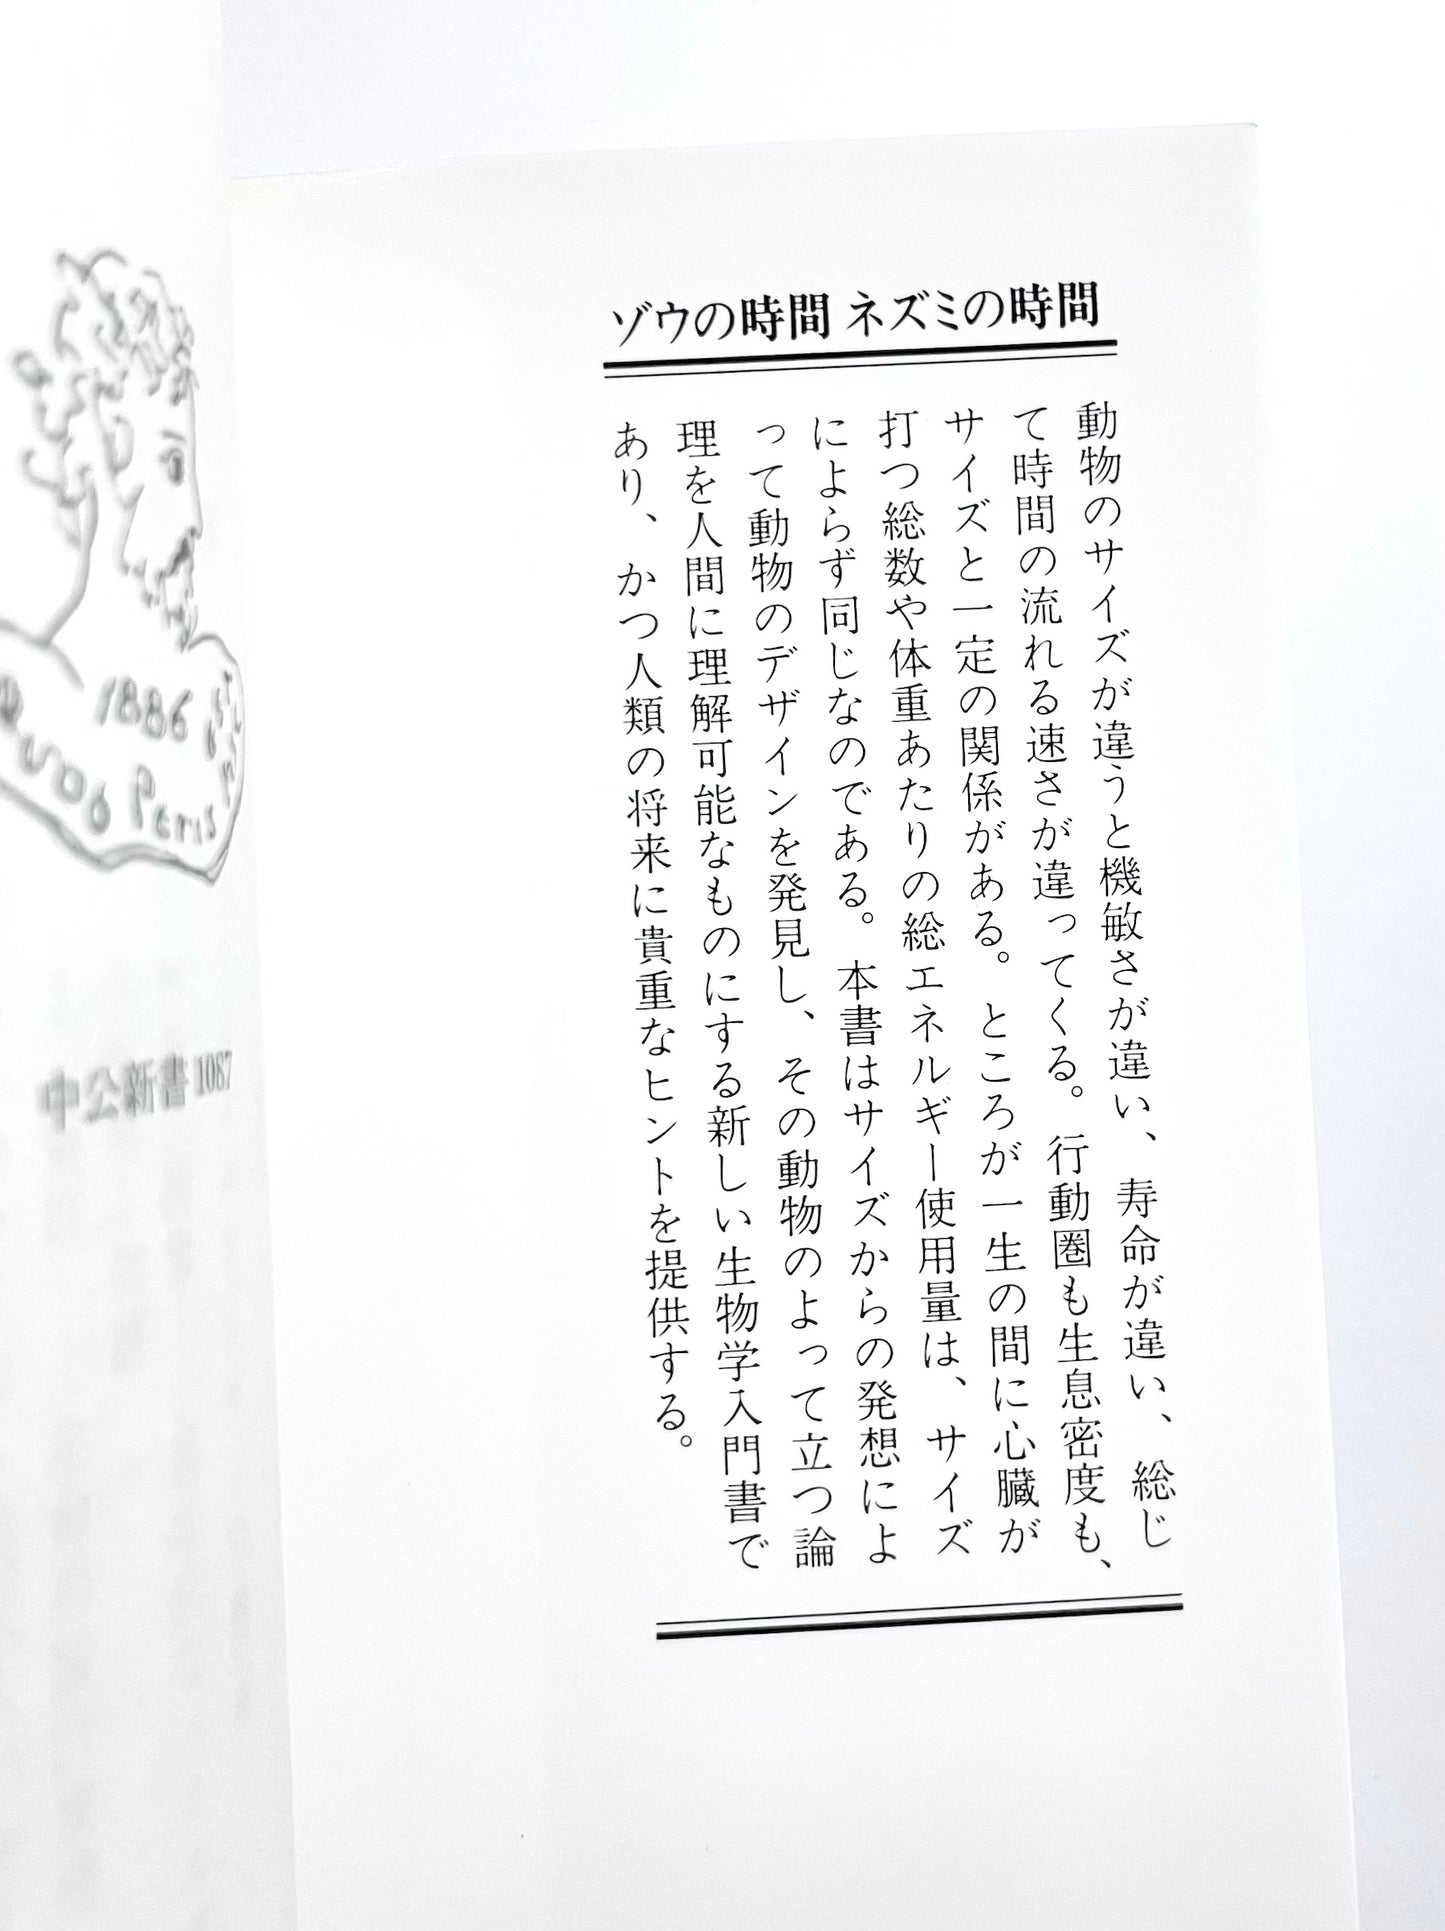 ゾウの時間 ネズミの時間
動物のサイズが違うと機敏さが違い、寿命が違い、総じ
て時間の流れる速さが違ってくる。行動圏も生息密度も、
サイズと一定の関係がある。ところが一生の間に心臓が
打つ総数や体重あたりの総エネルギー使用量は、サイズ
によらず同じなのである。本書はサイズからの発想によ
って動物のデザインを発見し、その動物のよって立つ論
理を人間に理解可能なものにする新しい生物学入門書で
あり、かつ人類の将来に貴重なヒントを提供する。
1886
中公新書 1087